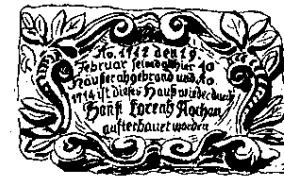 Ao. 1712 den 19.
Februar seind alhier 40
Heuser abgebrand und Ao.
1714 ist dieses Hauß wieder durch
Hanß Lorenh Kochan
aufferbauet worden